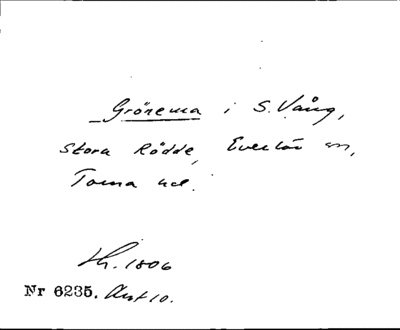 Grönema i S. Vång,
Stora Rödde, Everlöv sn,
Torna hd.
Lh. 1806
Nr 6235. Avt 10.